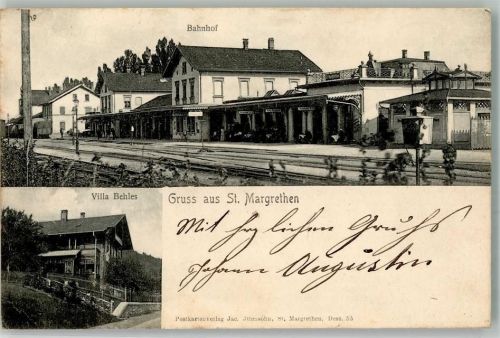 Bahnhof
Villa Behles
Gruss aus St. Margrethen
Mit hrzlichen Gruß
Johann Augustin
Postkartenverlag Jac. St. Margrethen, Dess. 55